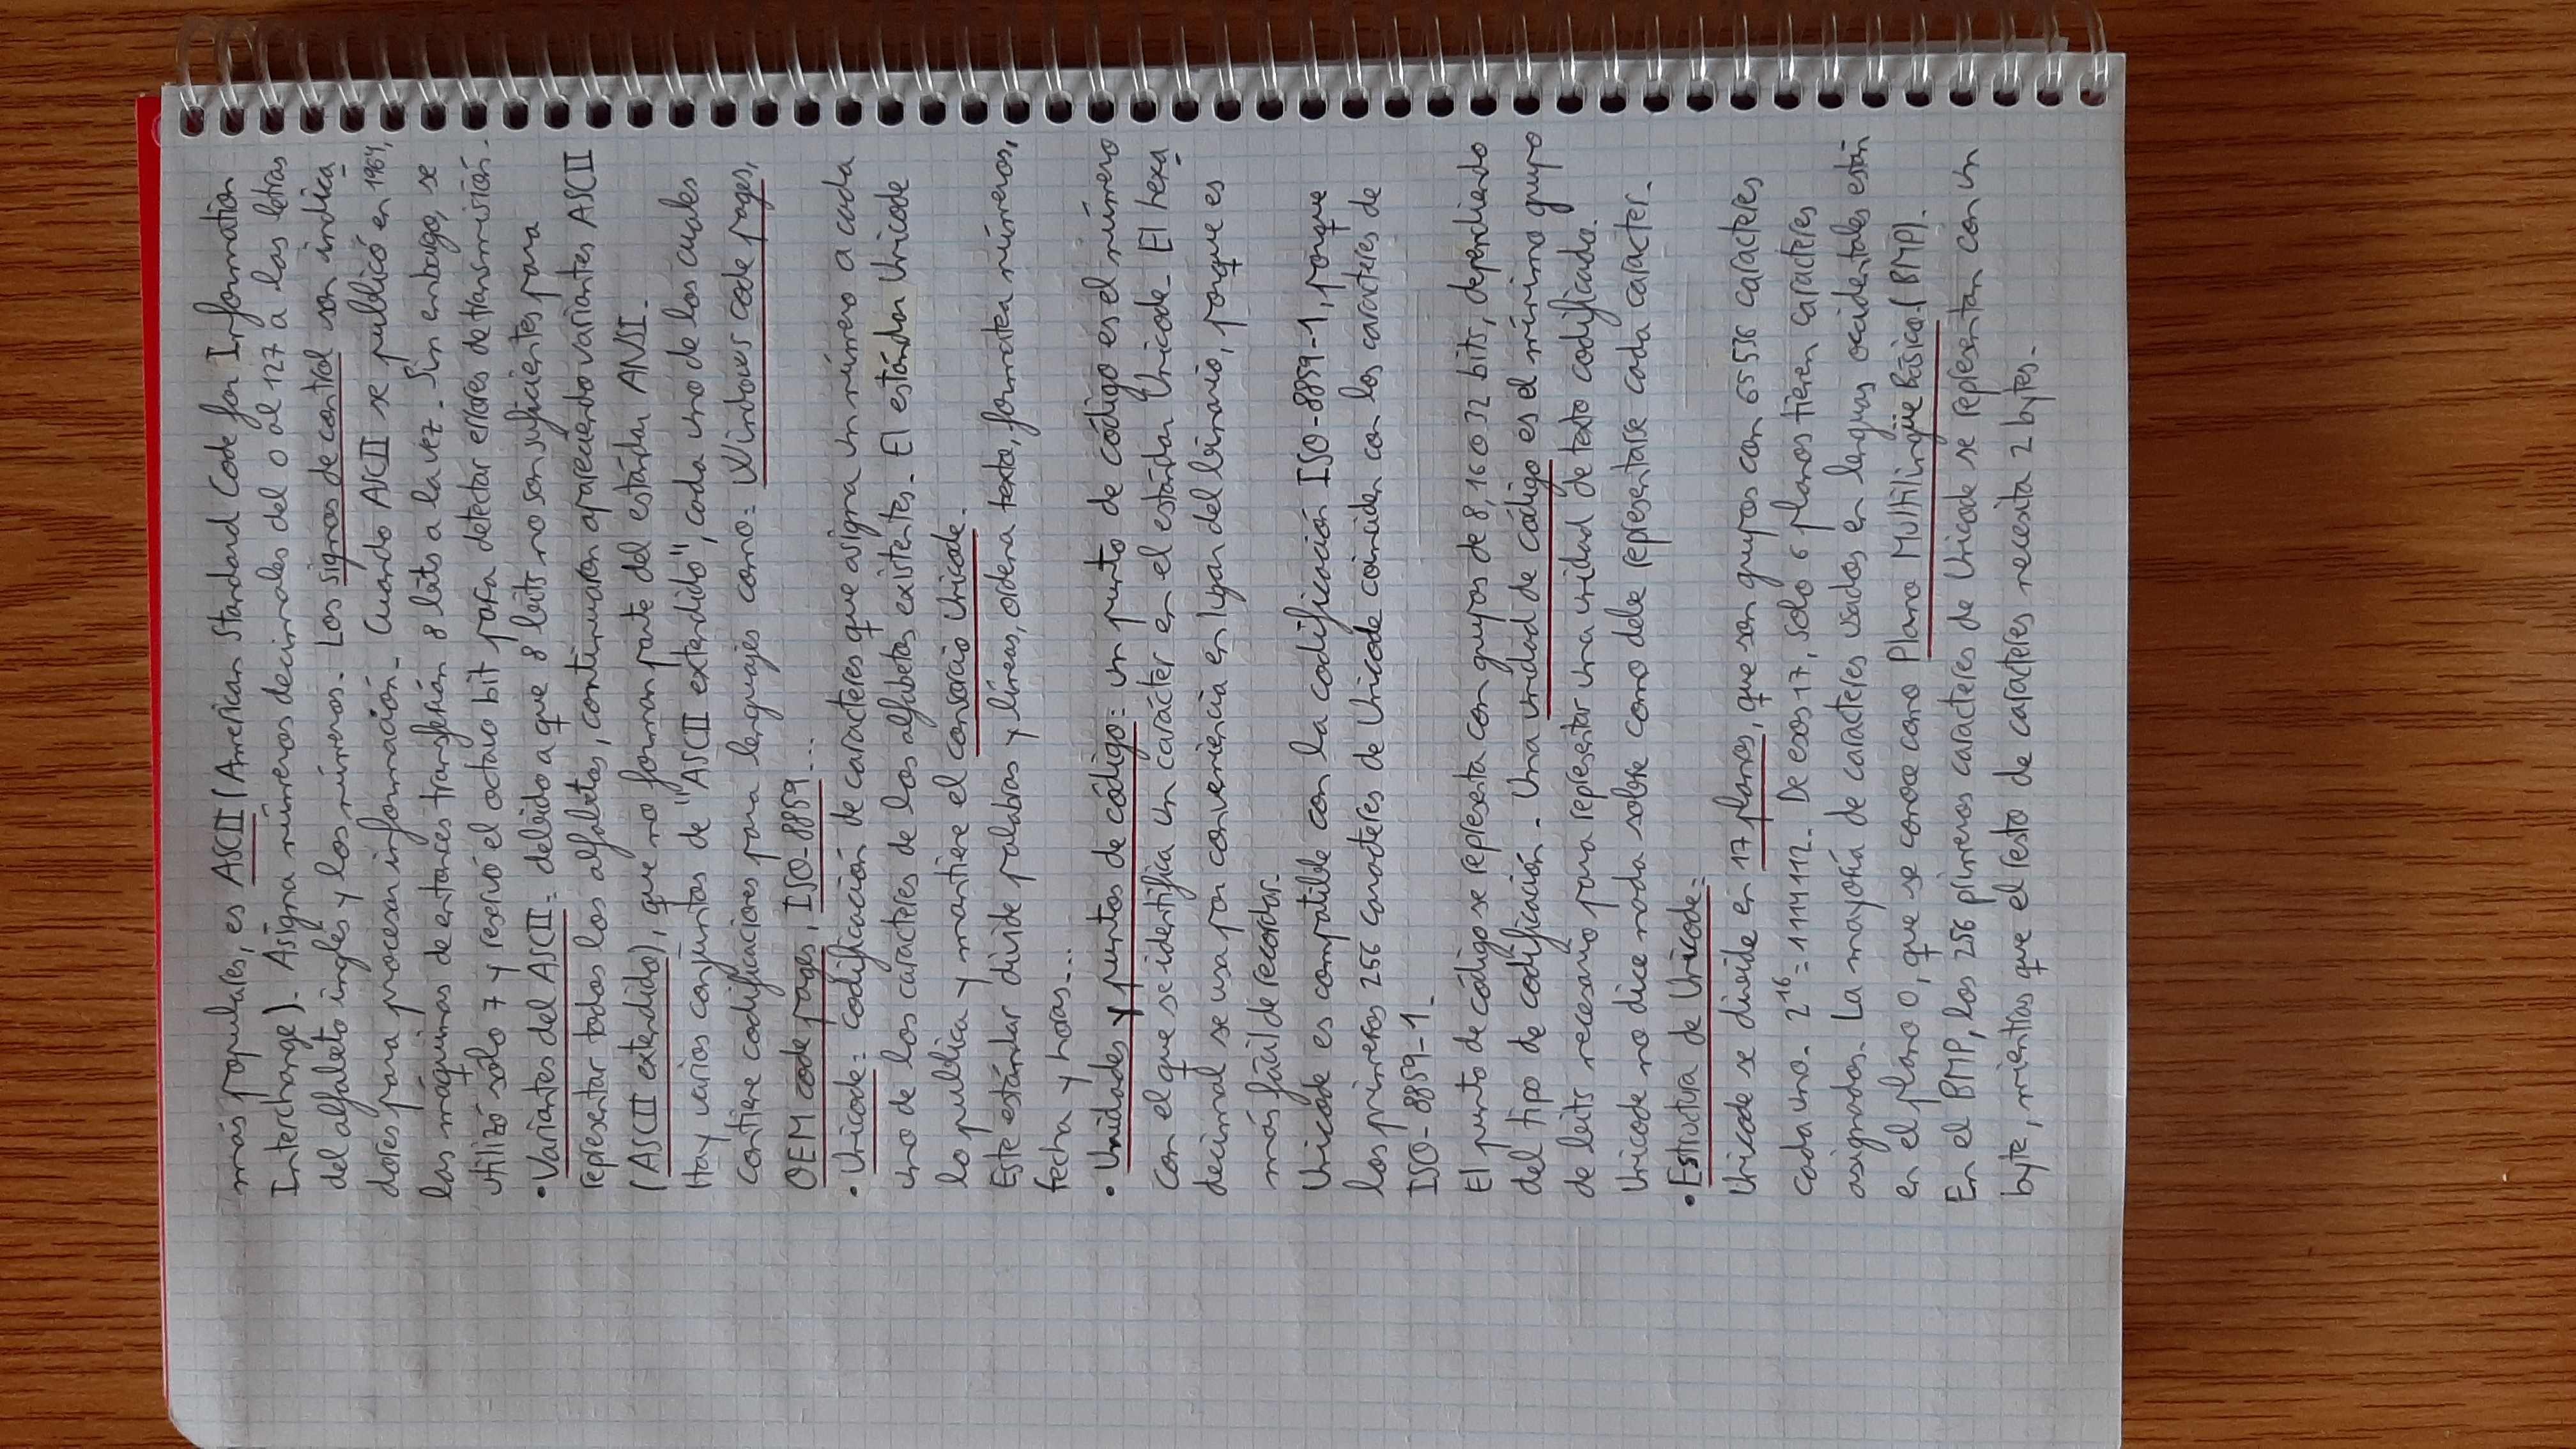 más populares, es ASCII (American Standard Code for Information
Interchange). Asigna números decimales del 0 al 127 a las letras
del alfabeto inglés y los números. Los signos de control son indica
dores para procesar información. Cuando ASCII se publicó en 1964,
las máquinas de entonces transferían 8 bits a la vez. Sin embargo, se
utilizó sólo 7 y reservó el octavo bit para detectar errores de transmisión.
• Variantes del ASCII: debido a que 8 bits no son suficientes para
representar todos los alfabetos, continuaron apareciendo variantes ASCII
(ASCII extendido), que no forman parte del estándar ANSI.
Hay varios conjuntos de "ASCII extendido", cada uno de los cuales
contiene codificaciones para lenguajes como: Windows code pages,
OEM code pages, ISO-8859...
• Unicode: codificación de caracteres que asigna un número a cada
uno de los caracteres de los alfabetos existentes. El estándar Unicode
lo publica y mantiene el consorcio Unicode.
Este estándar divide palabras y líneas, ordena texto, formatea números,
fecha y horas...
• Unidades y puntos de código: un punto de código es el número
con el que se identifica un carácter en el estándar Unicode. El hexa
decimal se usa por conveniencia en lugar del binario, porque es
más fácil de recordar.
Unicode es compatible con la codificación ISO-8859-1, porque
los primeros 256 caracteres de Unicode coinciden con los caracteres de
ISO-8859-1.
El punto de código se representa con grupos de 8, 16 o 32 bits, dependiendo
del tipo de codificación. Una unidad de código es el mínimo grupo
de bits necesario para representar una unidad de texto codificada.
Unicode no dice nada sobre como debe representarse cada caracter.
• Estructura de Unicode:
Unicode se divide en 17 planos, que son grupos con 65536 caracteres
cada uno. 2¹⁶=1114112. De esos 17, solo 6 planos tienen caracteres
asignados. La mayoría de caracteres usados en lenguas occidentales están
en el plano 0, que se conoce como Plano Multilingüe Básico (BMP).
En el BMP, los 256 primeros caracteres de Unicode se representan con un
byte, mientras que el resto de caracteres necesita 2 bytes.